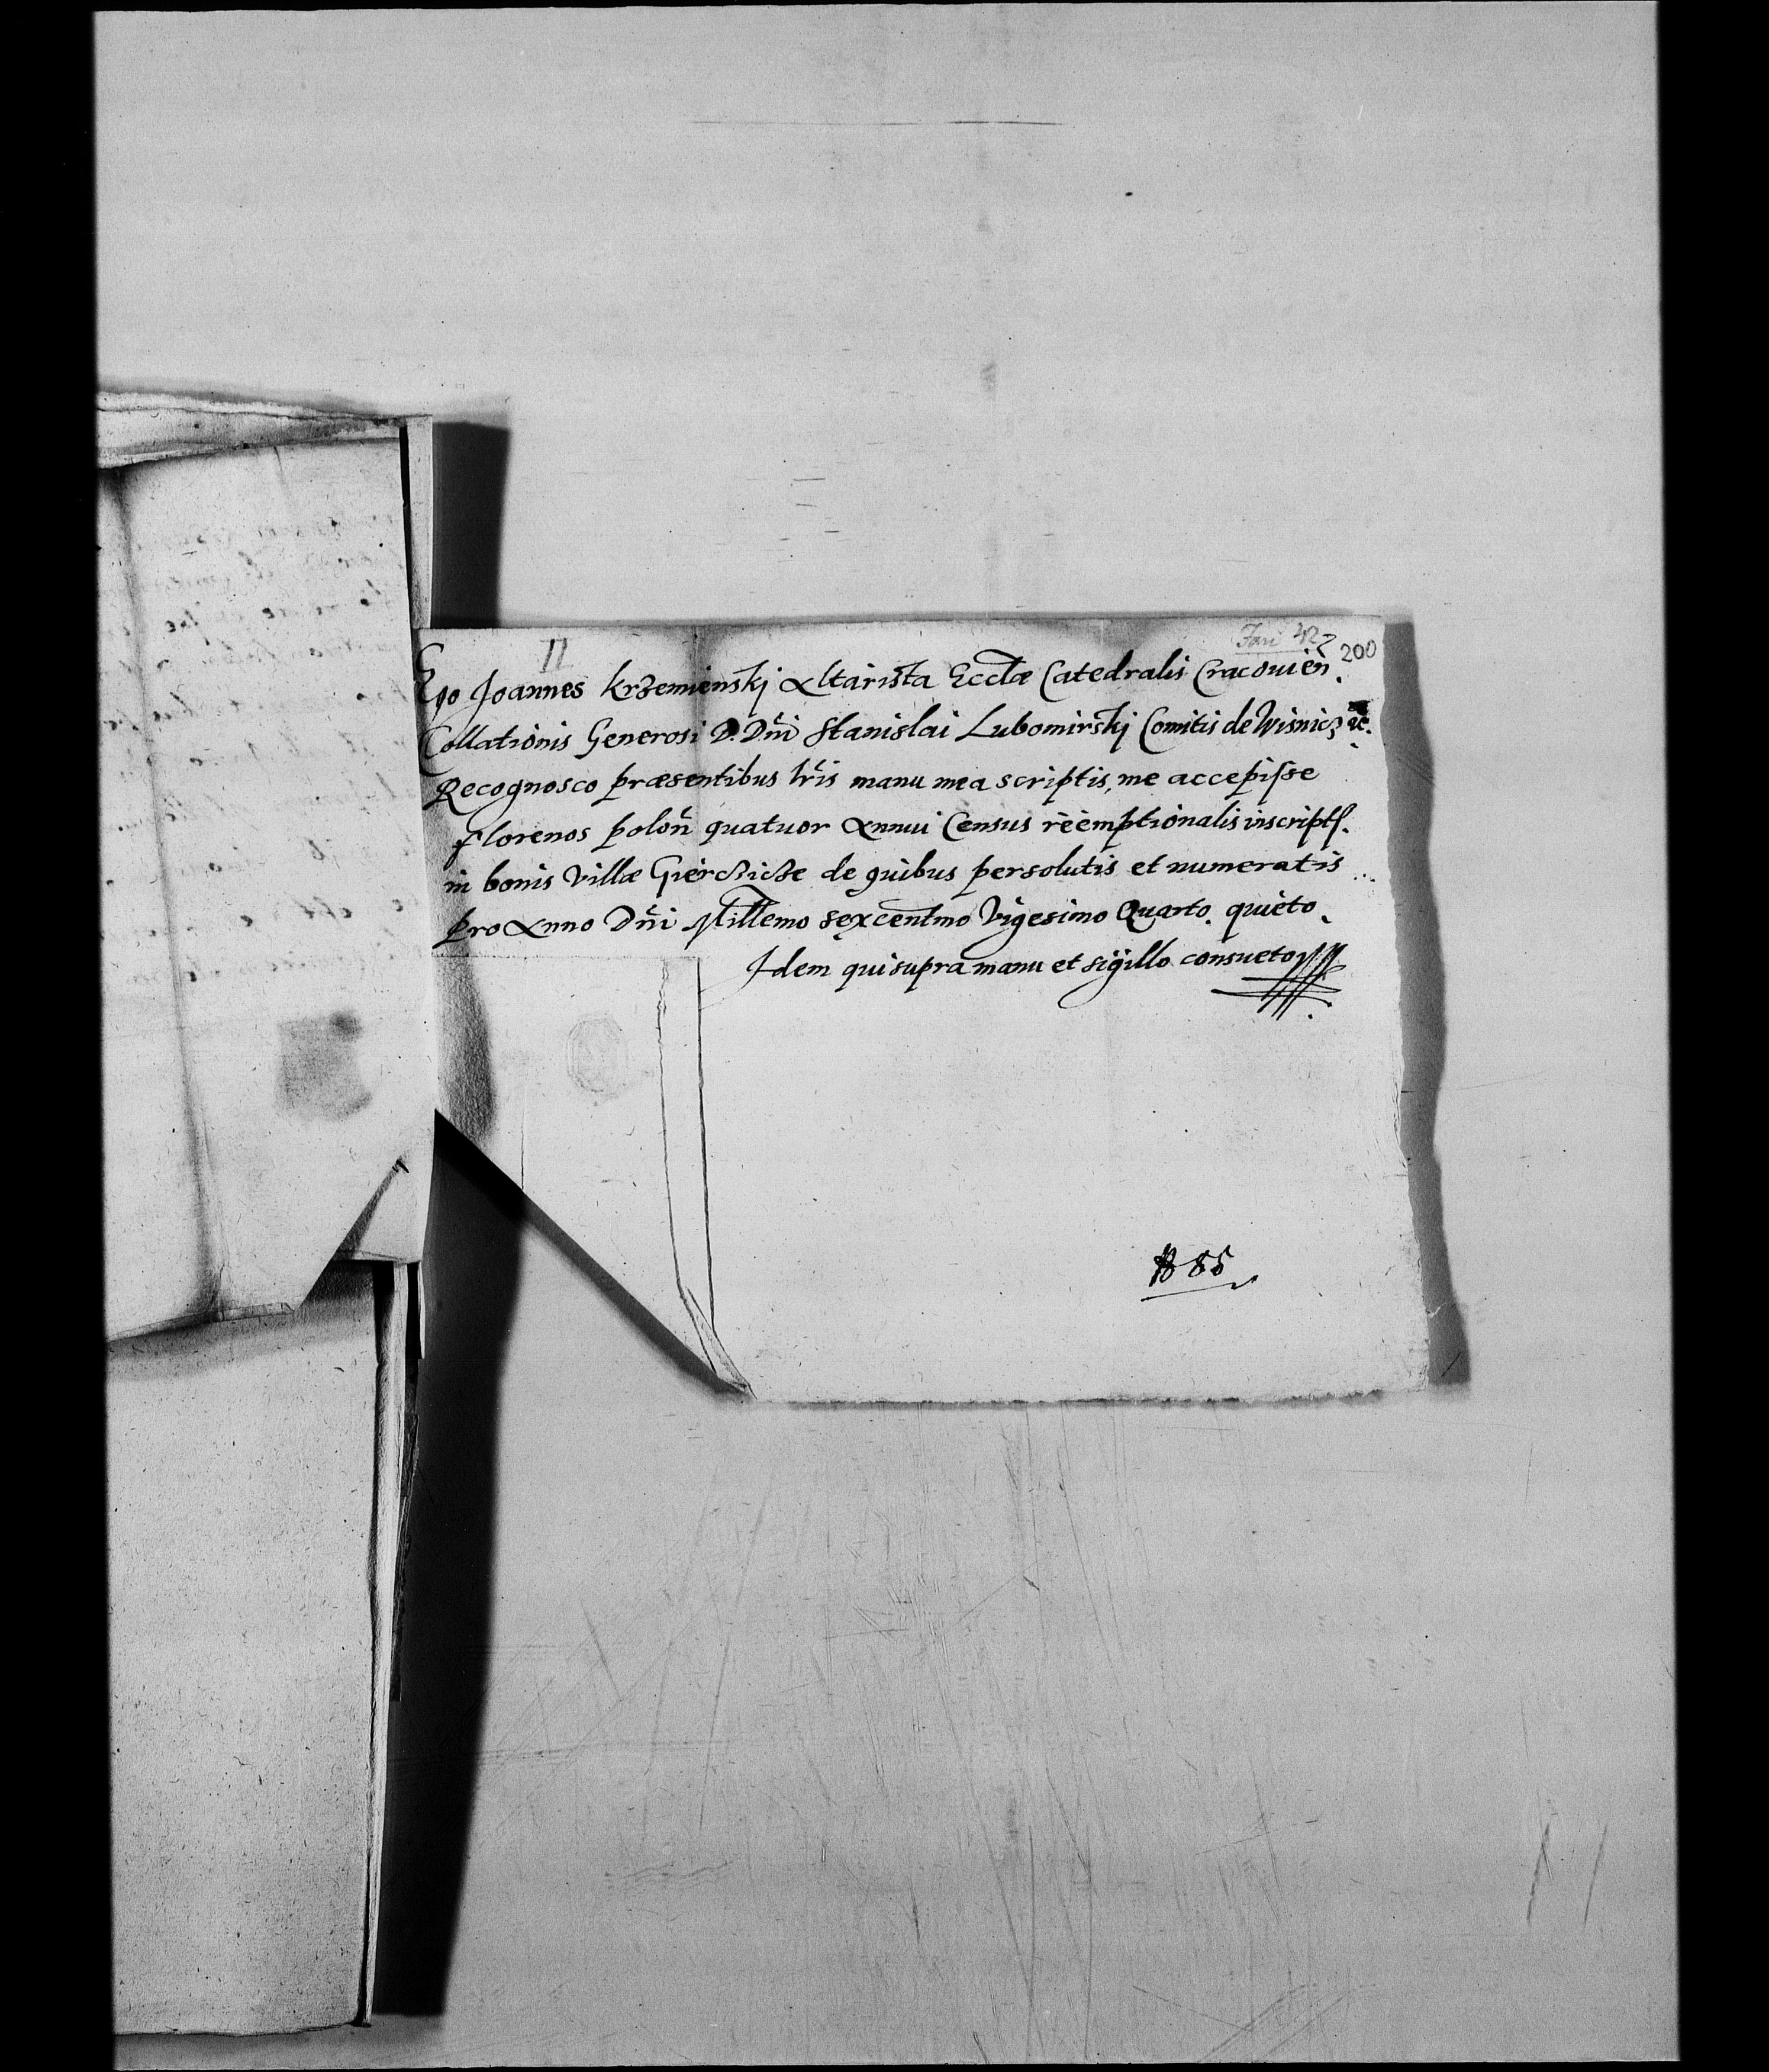 II
Fasc 42
200
Ego Joannes Krzemienskj Altarista Ecclae Catedralis Cracouien.
Collationis Generosi D. Dni Stanislai Lubomirskj Comitis de Wisnicz etc.
Recognosco praesentibus lris manu mea scriptis, me accepisse
florenos polon quatuor Annui Census reemptionalis inscript.
in bonis Villae Gierczicze de quibus persolutis et numeratis
pro Anno Dni Millemo sexcentmo Vigesimo Quarto. quieto.
Idem qui supra manu et sigillo consueto
85